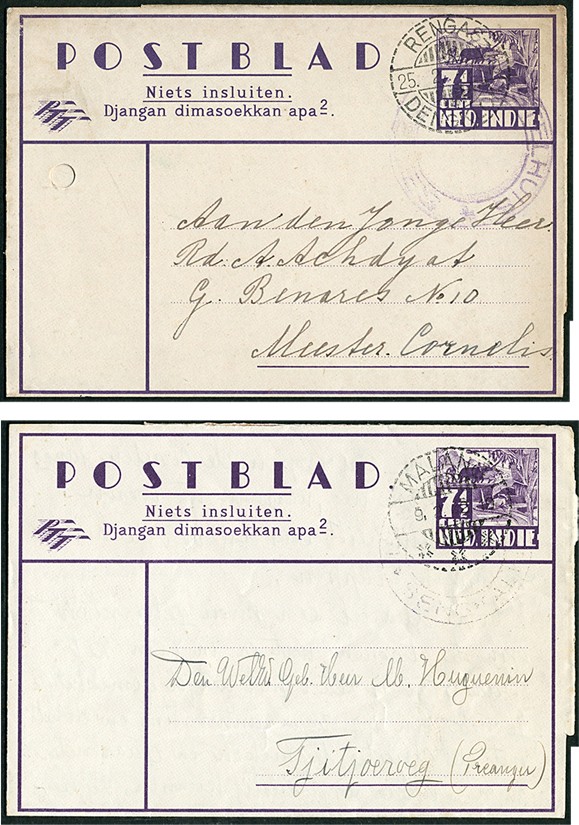 POSTBLAD.
Niets insluiten.
Djangan dimasoekkan apa2.
PTT
RENGAS
25.
DE
7½
NED. INDIE
Aan den Jonge Heer
Rd. A. Achdyat
G. Benares No 10
Meester. Cornelis
POSTBLAD.
Niets insluiten.
Djangan dimasoekkan apa2.
PTT
MALAN
9.
7½
NED. INDIE
Den WelEd Geb. Heer M. Huguenin
Tjitjoeroeg (Preanger)